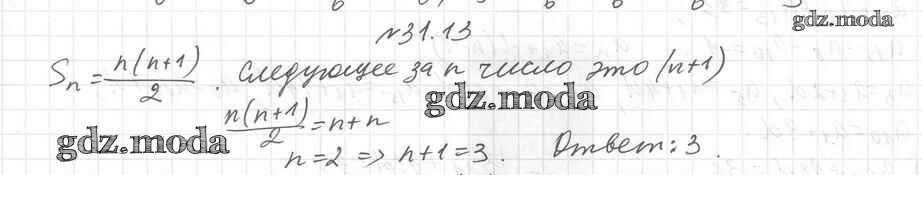 gdz.moda
№31.13
Sn = n(n+1)/2 . Следующее за n число это (n+1)
gdz.moda
n(n+1)/2 = n+n
gdz.moda
n=2 => n+1=3 . Ответ: 3 .